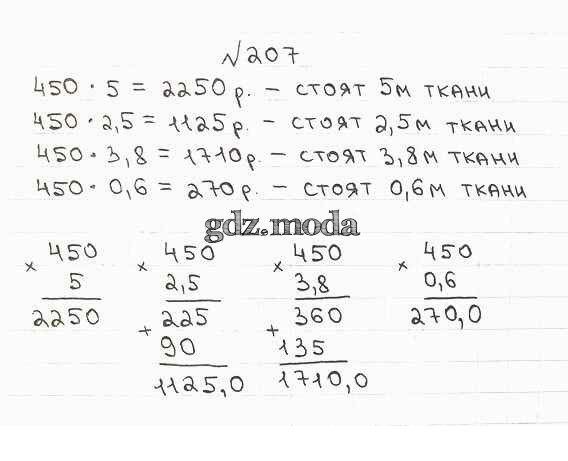 №207
450 · 5 = 2250 р. – стоят 5м ткани
450 · 2,5 = 1125 р. – стоят 2,5м ткани
450 · 3,8 = 1710 р. – стоят 3,8м ткани
450 · 0,6 = 270 р. – стоят 0,6м ткани
gdz.moda
× 450 × 450 × 450 × 450
5 2,5 3,8 0,6
2250 + 225 + 360 270,0
90 135
1125,0 1710,0